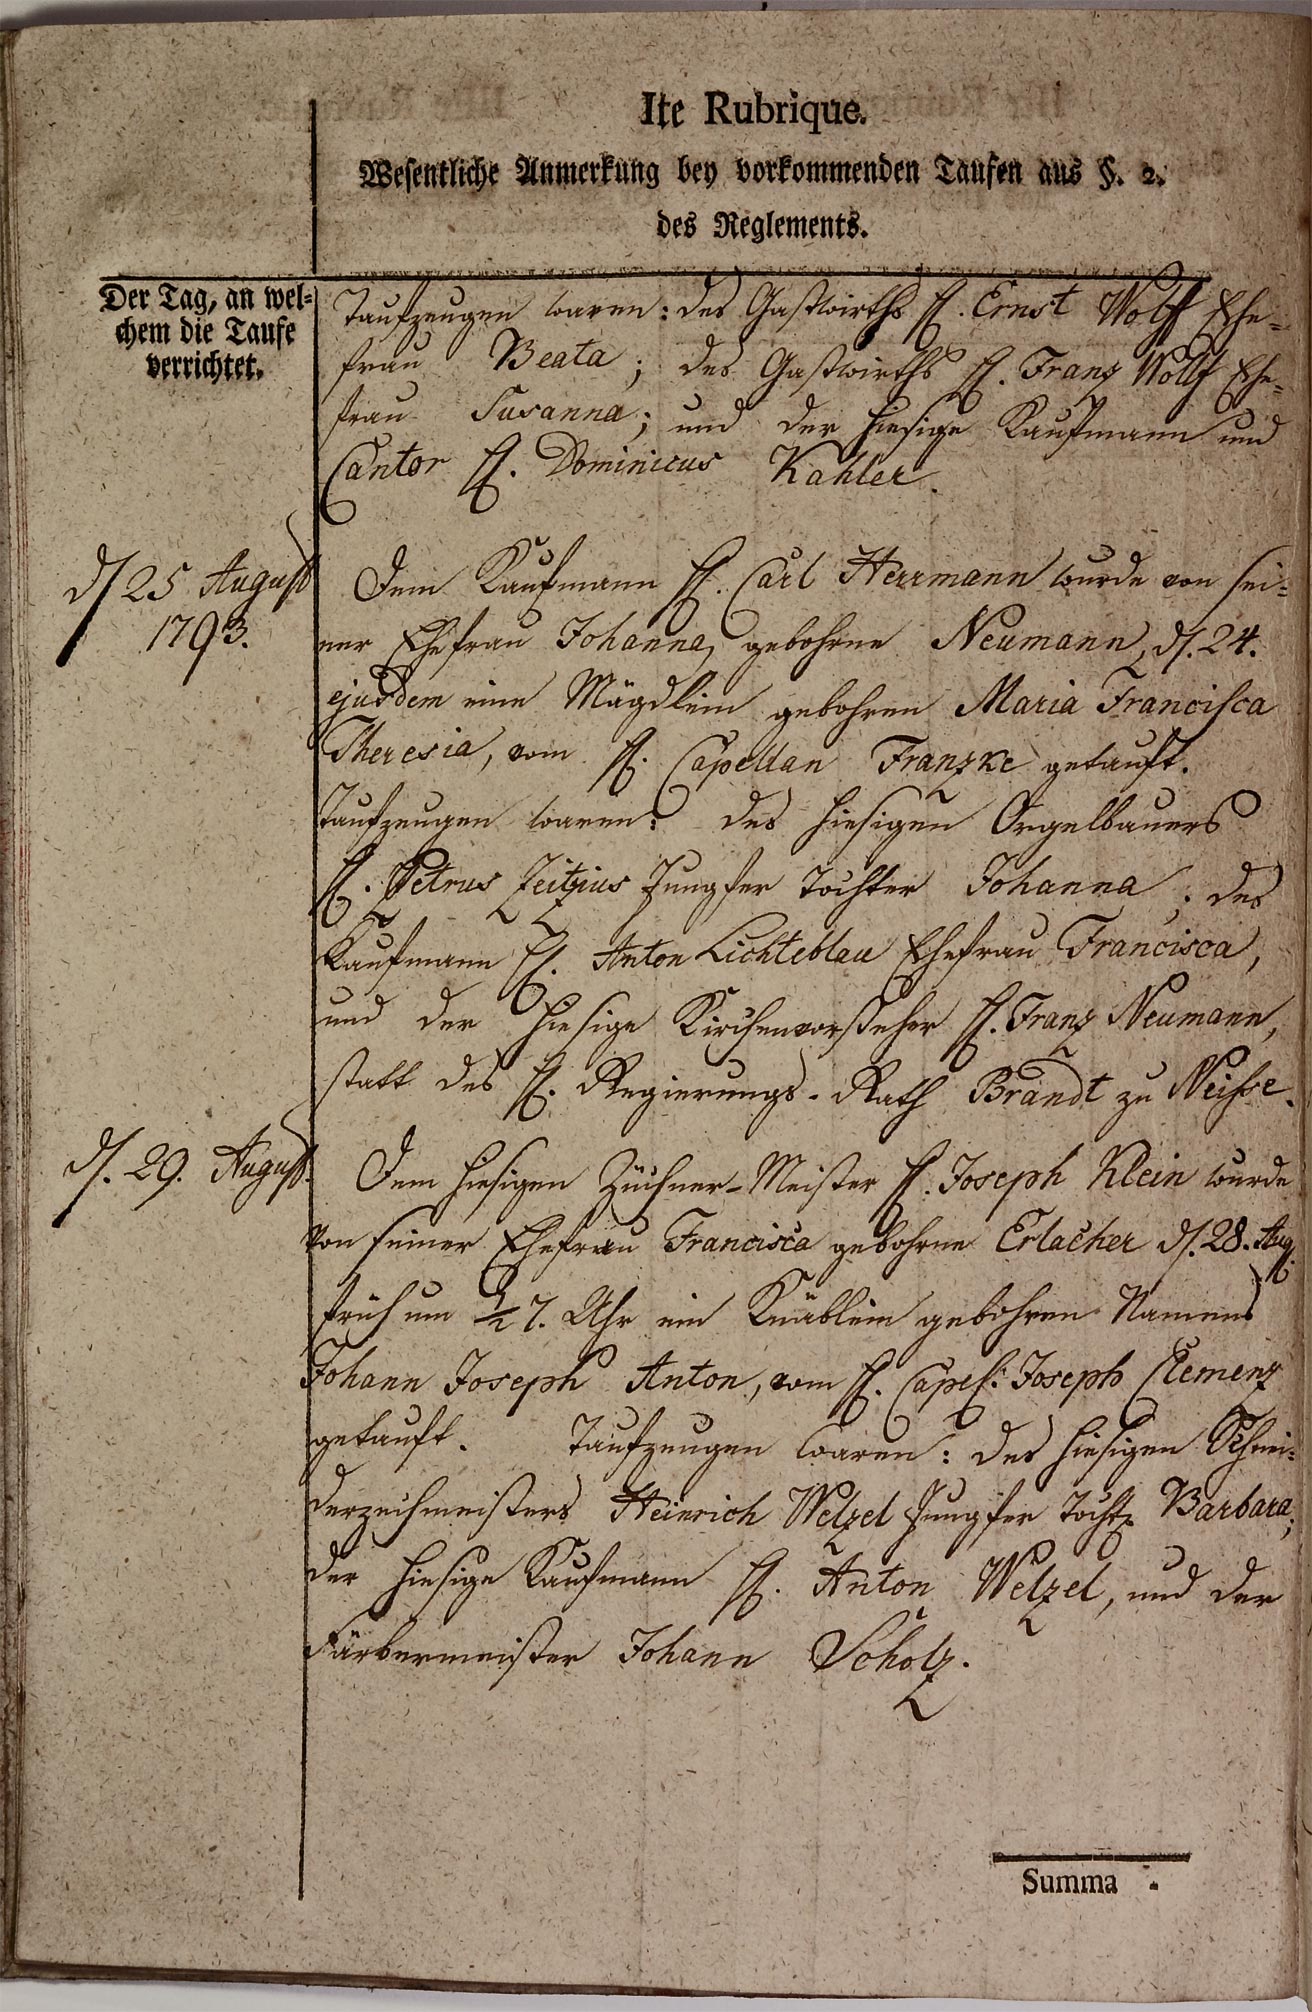 Ite Rubrique.
Wesentliche Anmerkung bey vorkommenden Taufen aus §. 2.
des Reglements.
Der Tag, an wel-
chem die Taufe
verrichtet.
Taufzeugen waren: des Gastwirths H. Ernst Wolff Ehe-
frau Beata; des Gastwirths H. Franz Wolff Ehe-
frau Susanna; und der hiesige Kaufmann und
Cantor H. Dominicus Kahler.
d. 25 August
1793.
Dem Kaufmann H. Carl Herrmann wurde von sei-
ner Ehefrau Johanna, gebohrne Neumann, d. 24.
ejusdem eine Mägdlein gebohren Maria Francisca
Theresia, vom H. Capellan Franzke getauft.
Taufzeugen waren: des hiesigen Orgelbauers
H. Petrus Zeitzius Jungfer Tochter Johanna; des
Kaufmann H. Anton Lichteblau Ehefrau Francisca,
und der hiesige Kirchenvorsteher H. Franz Neumann,
statt des H. Regierungs-Rath Brandt zu Neisse.
d. 29. August.
Dem hiesigen Züchner-Meister H. Joseph Klein wurde
von seiner Ehefrau Francisca gebohrne Erlacher d. 28. Aug.
früh um ½ 7. Uhr ein Knäblein gebohren Namens
Johann Joseph Anton, vom H. Capel: Joseph Clemenz
getauft. Taufzeugen waren: des hiesigen Schnei-
derzechmeisters Heinrich Welzel Jungfer Tocht. Barbara;
der hiesige Kaufmann H. Anton Welzel, und der
Färbermeister Johann Scholz.
Summa -